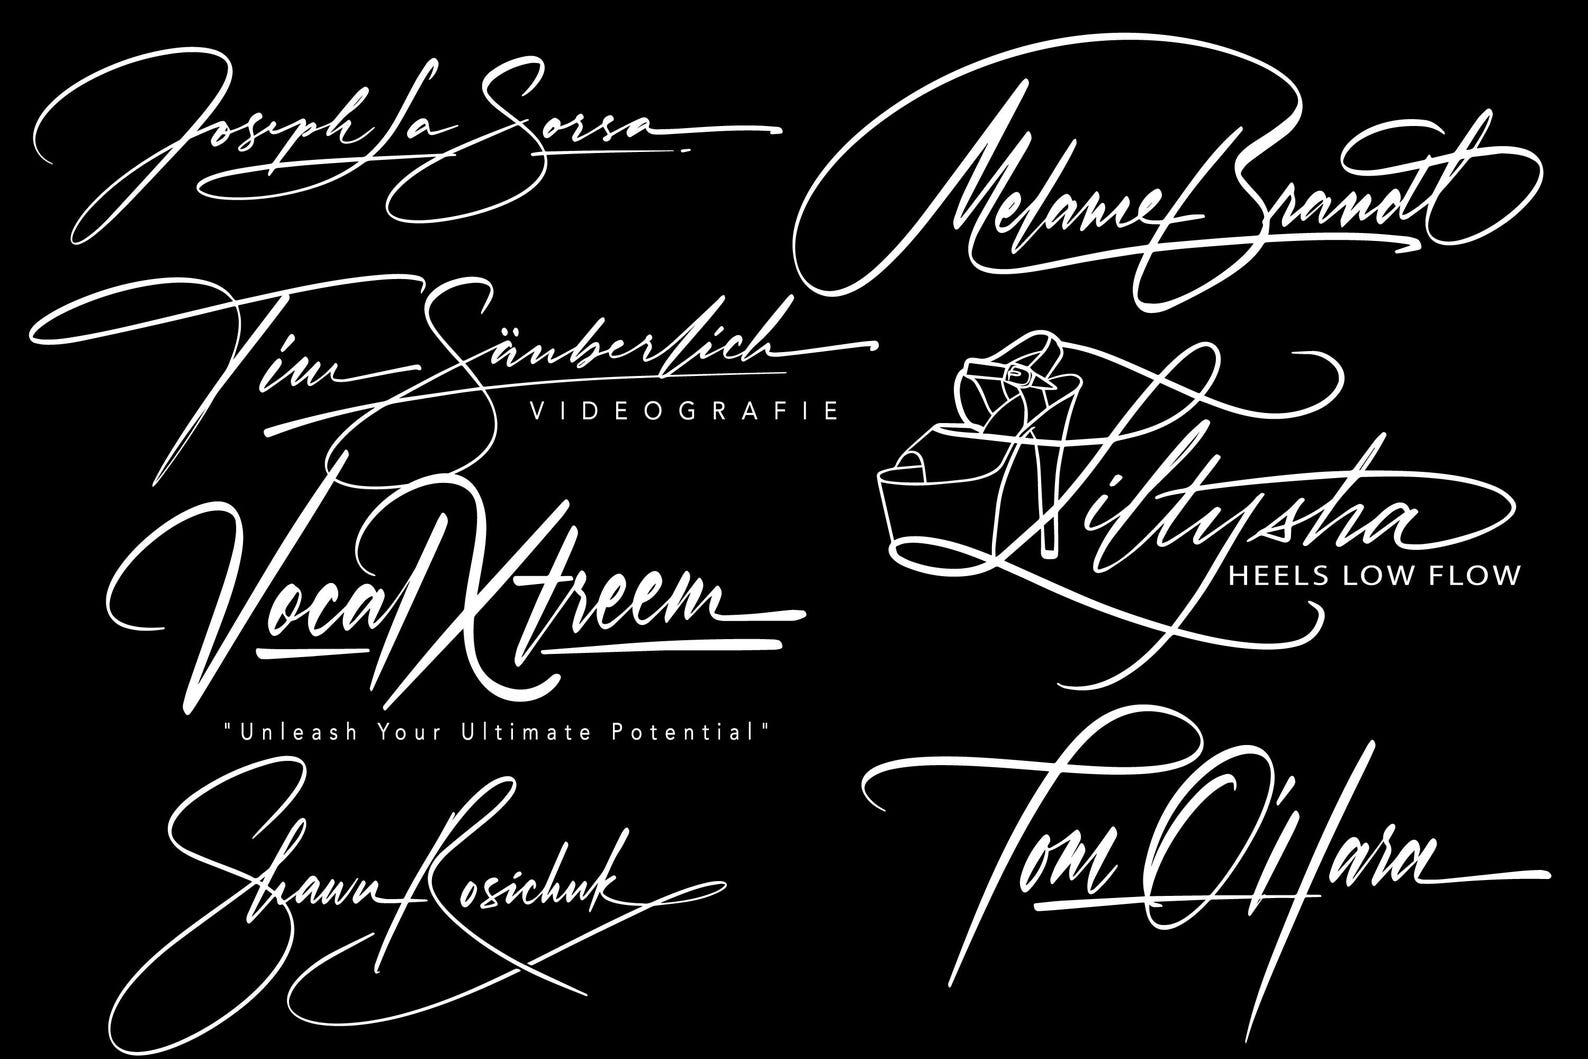 Joseph La Sorsa
Melanie Brandt
Tim Säuberlich
VIDEOGRAFIE
Liltysha
HEELS LOW FLOW
Vocal Xtreem
"Unleash Your Ultimate Potential"
Shawn Rosichuk
Tom O'Hara